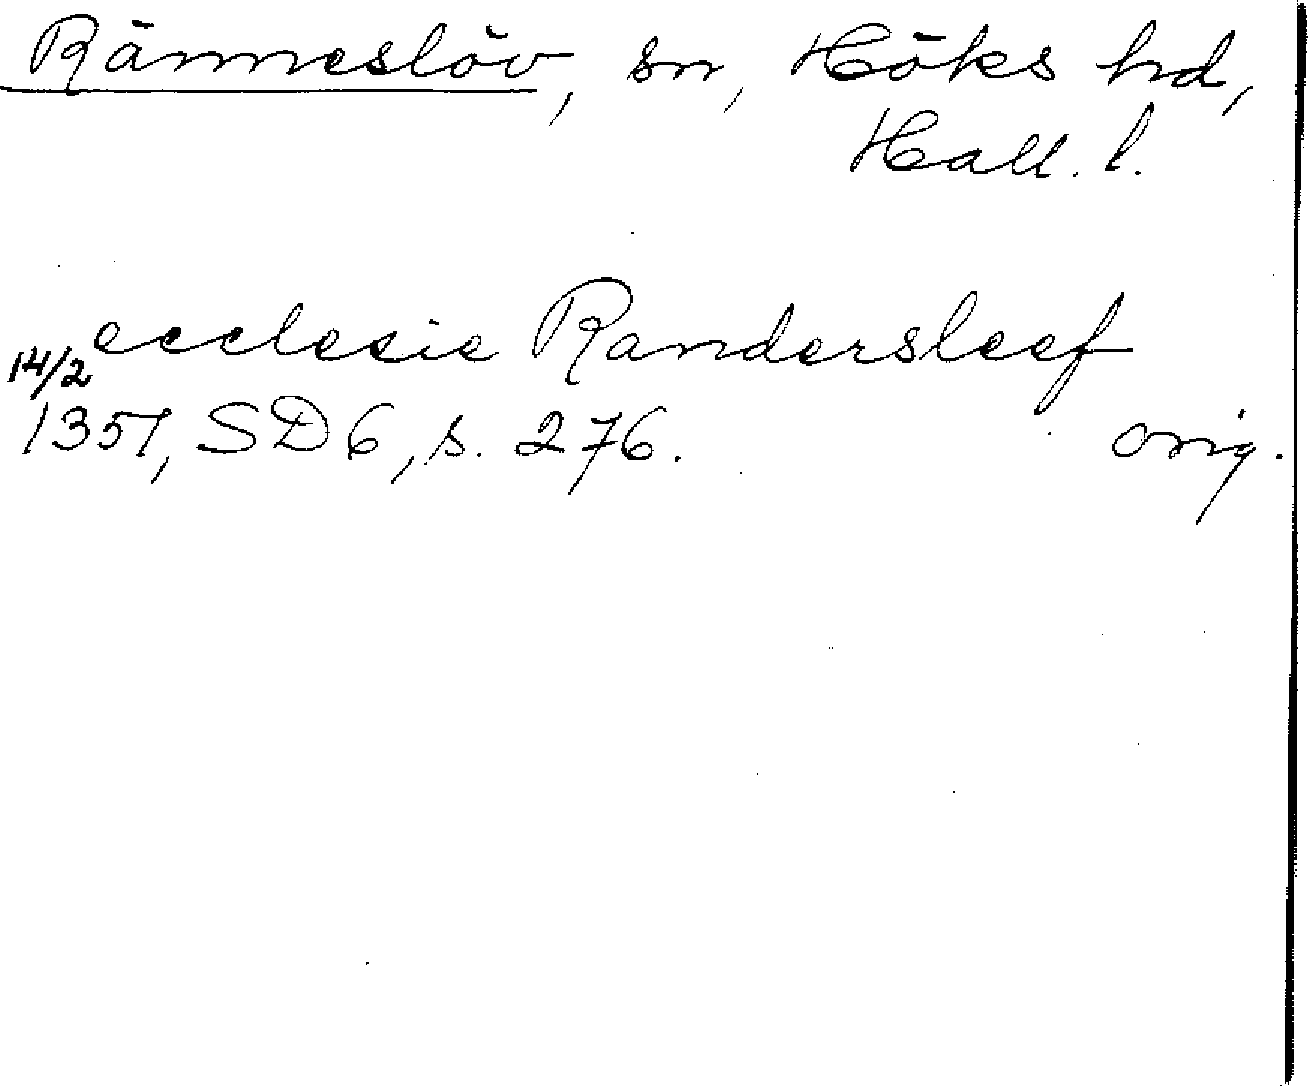 Ränneslöv, sn, Höks hd,
Hall. l.
ecclesie Randersleef
14/2
1351, SD 6, s. 276. orig.